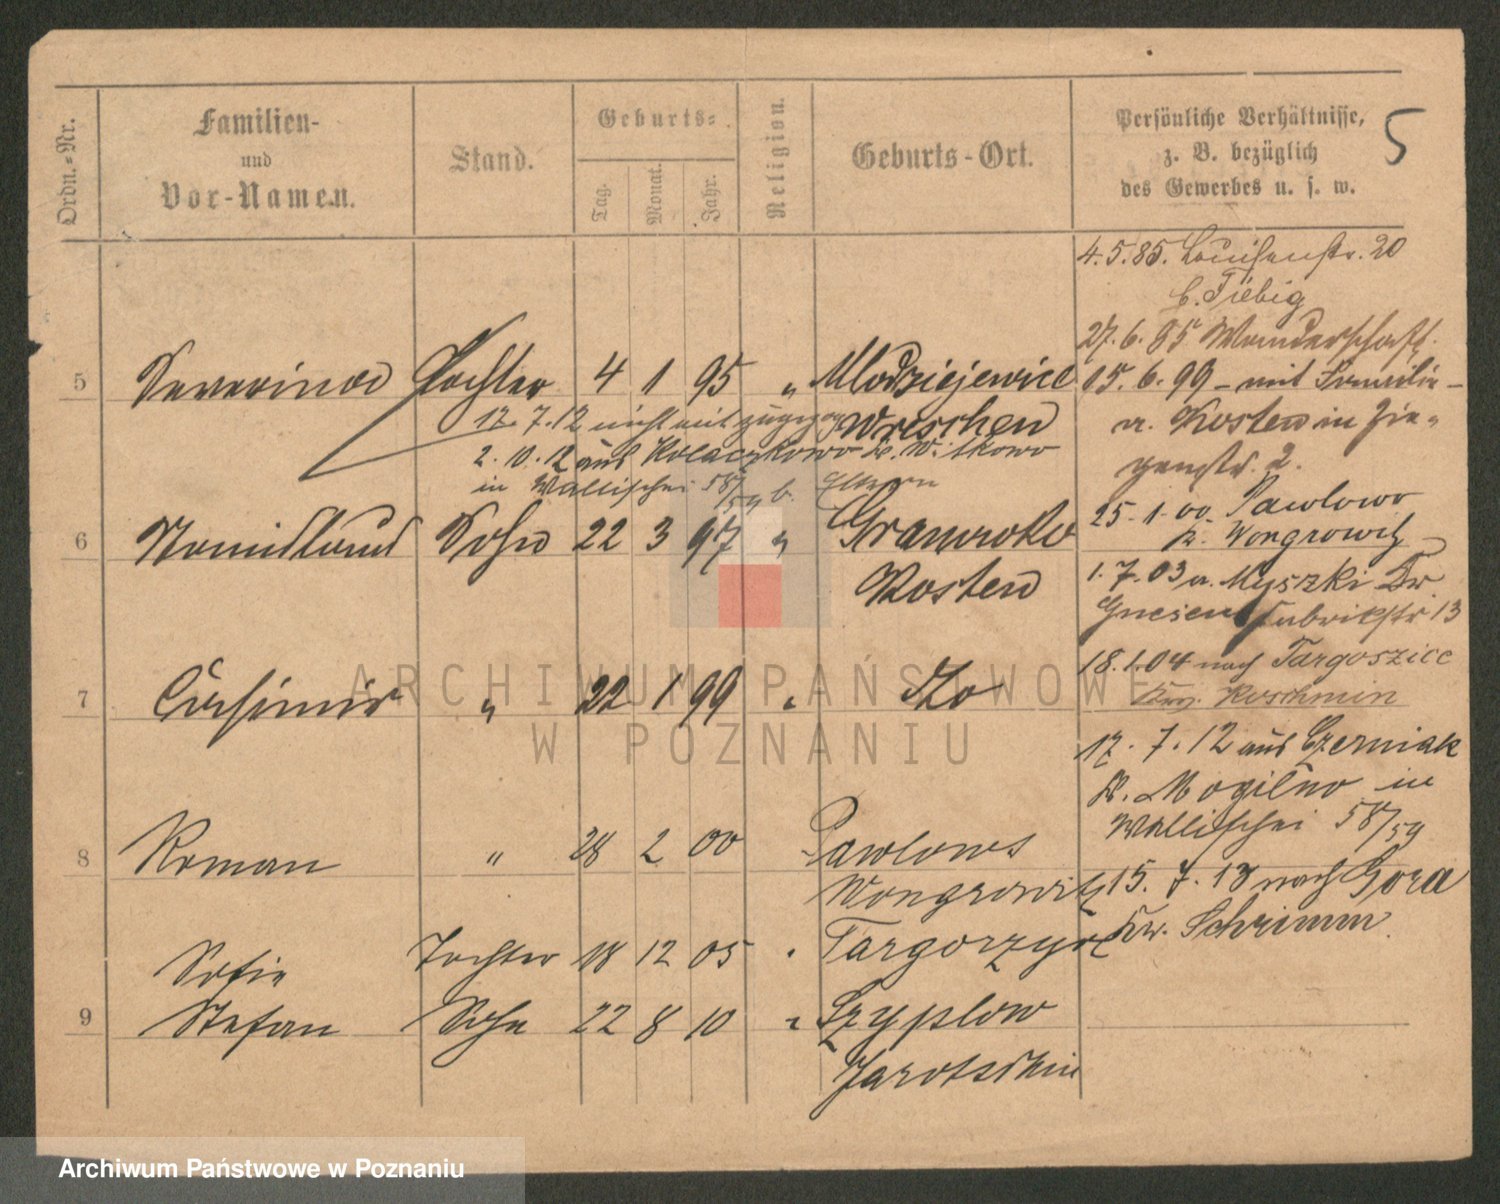 5
Ordn.=Nr.
Familien-
und
Vor-Namen.
Stand.
Geburts=
Tag.
Monat.
Jahr.
Religion.
Geburts-Ort.
Persönliche Verhältnisse,
z. B. bezüglich
des Gewerbes u. s. w.
4.5.85. Louisenstr. 20
b. Fiebig
27.6.85 Wanderschaft.
5 Severina Tochter 4 1 95 " Mlodziejewice
Wreschen
15.6.99 – mit Familie –
a. Kosten in Zie=
genstr. 2.
17.7.12 nicht mit zugezogen
2.10.12 aus Kolaczkowo Kr. Witkowo
in Wallischei 58/59 b. Eltern
6 Sohn 22 3 97 "
Kosten
25.1.00 Pawlowo
Kr. Wongrowitz
1.7.03 a. Myszki Kr.
Gnesen Fabrikstr 13
7 Casimir " 22 1 99 "
18.1.04 nach Targoszice
Krs. Koschmin
17.7.12 aus Czerniak
Kr. Mogilno in
Wallischei 58/59
8 Roman " 28 2 00 Pawlowo
Wongrowitz
15.7.13 nach Gora
Kr. Schrimm.
Sofie Tochter 18 12 05 "
9 Stefan Sohn 22 8 10 " Szyplow
Jarotschin
ARCHIWUM PAŃSTWOWE
W POZNANIU
Archiwum Państwowe w Poznaniu